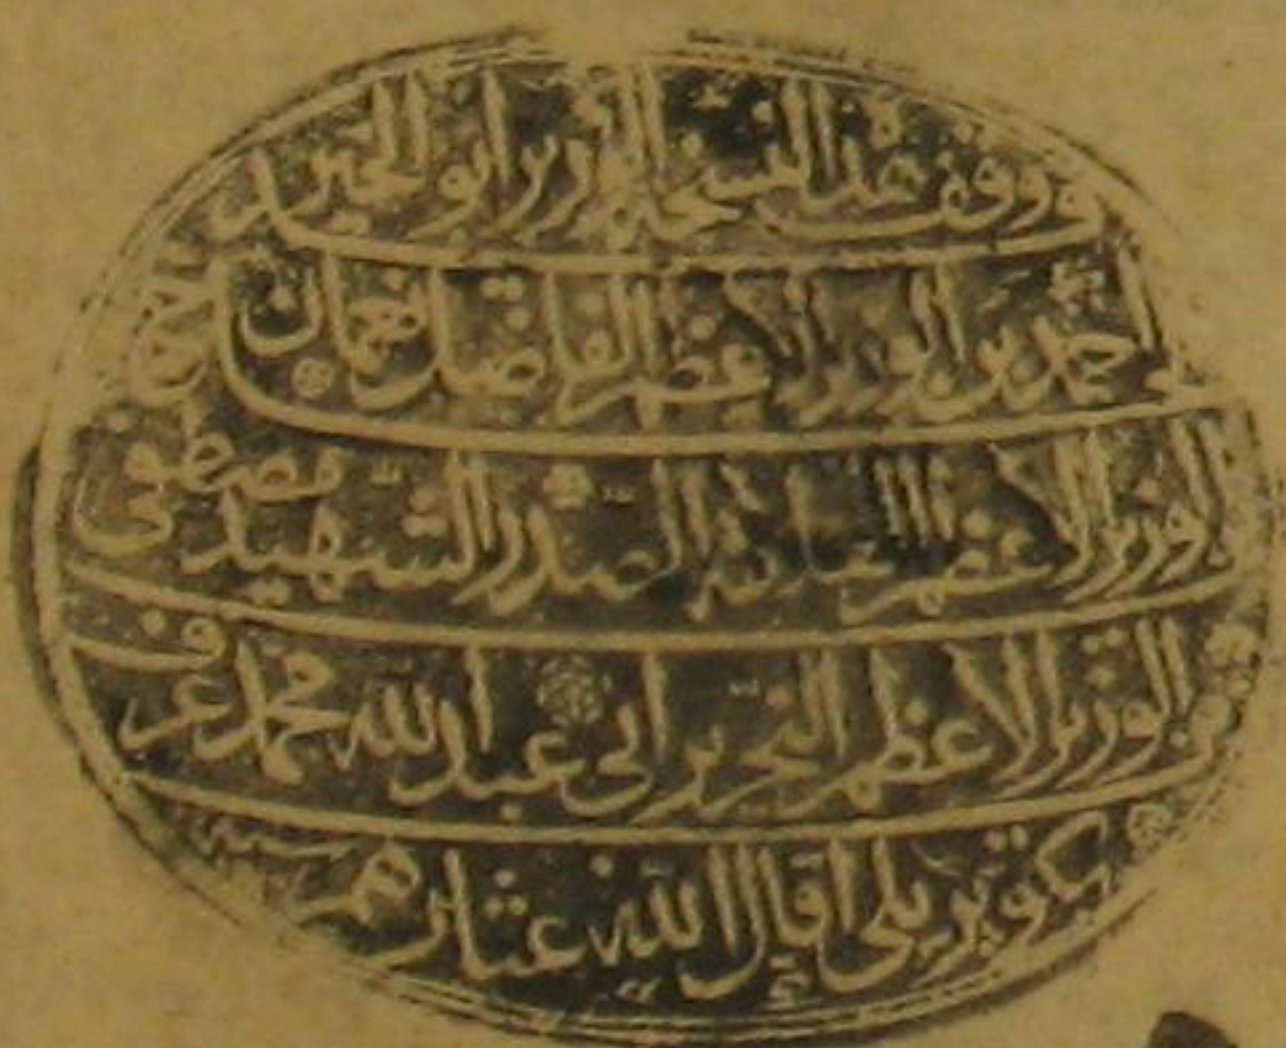 وقف هذه النسخة الوزير ابو الخير الحاج
احمد بن الوزير الاعظم الفاضل نعمان
الوزير الاعظم العلامة الصدر الشهيد مصطفى
بن الوزير الاعظم النحرير ابي عبد الله محمد عرف
بكوپريلي اقال الله عثارهم